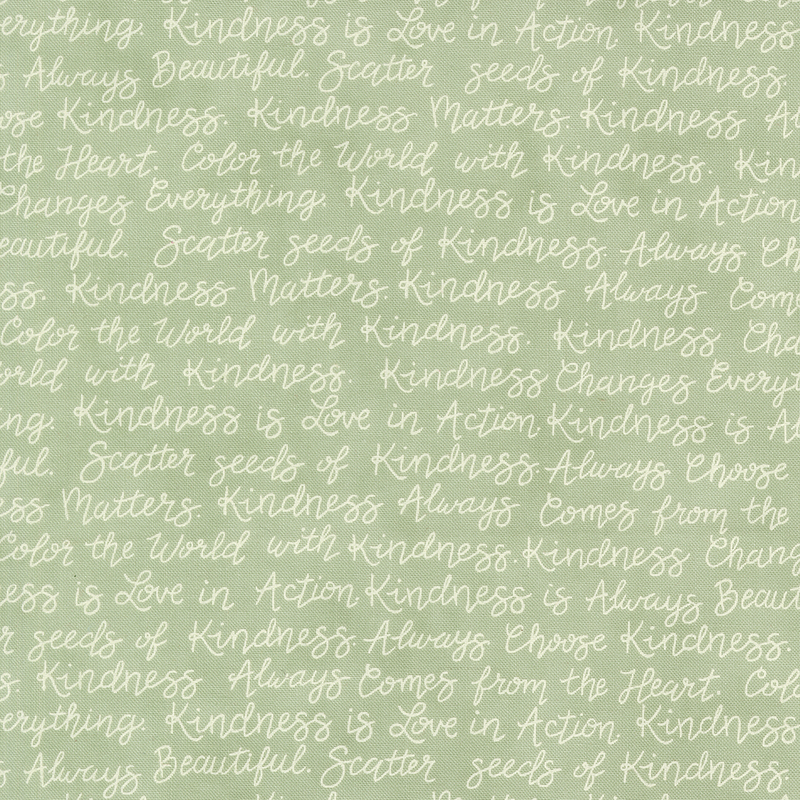 erything. Kindness is Love in Action Kindness
Always Beautiful. Scatter seeds of Kindness.
ose Kindness. Kindness Matters. Kindness Al
the Heart. Color the World with Kindness. Kin
Changes Everything. Kindness is Love in Action
eautiful. Scatter seeds of Kindness. Always Ch
ss. Kindness Matters. Kindness Always Come
Color the World with Kindness. Kindness Cha
orld with Kindness. Kindness Changes Everyt
ng. Kindness is Love in Action. Kindness is Al
ful. Scatter seeds of Kindness. Always Choose
ss Matters. Kindness Always Comes from the
Color the World with Kindness. Kindness Chang
ess is Love in Action. Kindness is Always Beaut
r seeds of Kindness. Always Choose Kindness.
s. Kindness Always Comes from the Heart. Colo
erything. Kindness is Love in Action. Kindness
s Always Beautiful. Scatter seeds of Kindness.